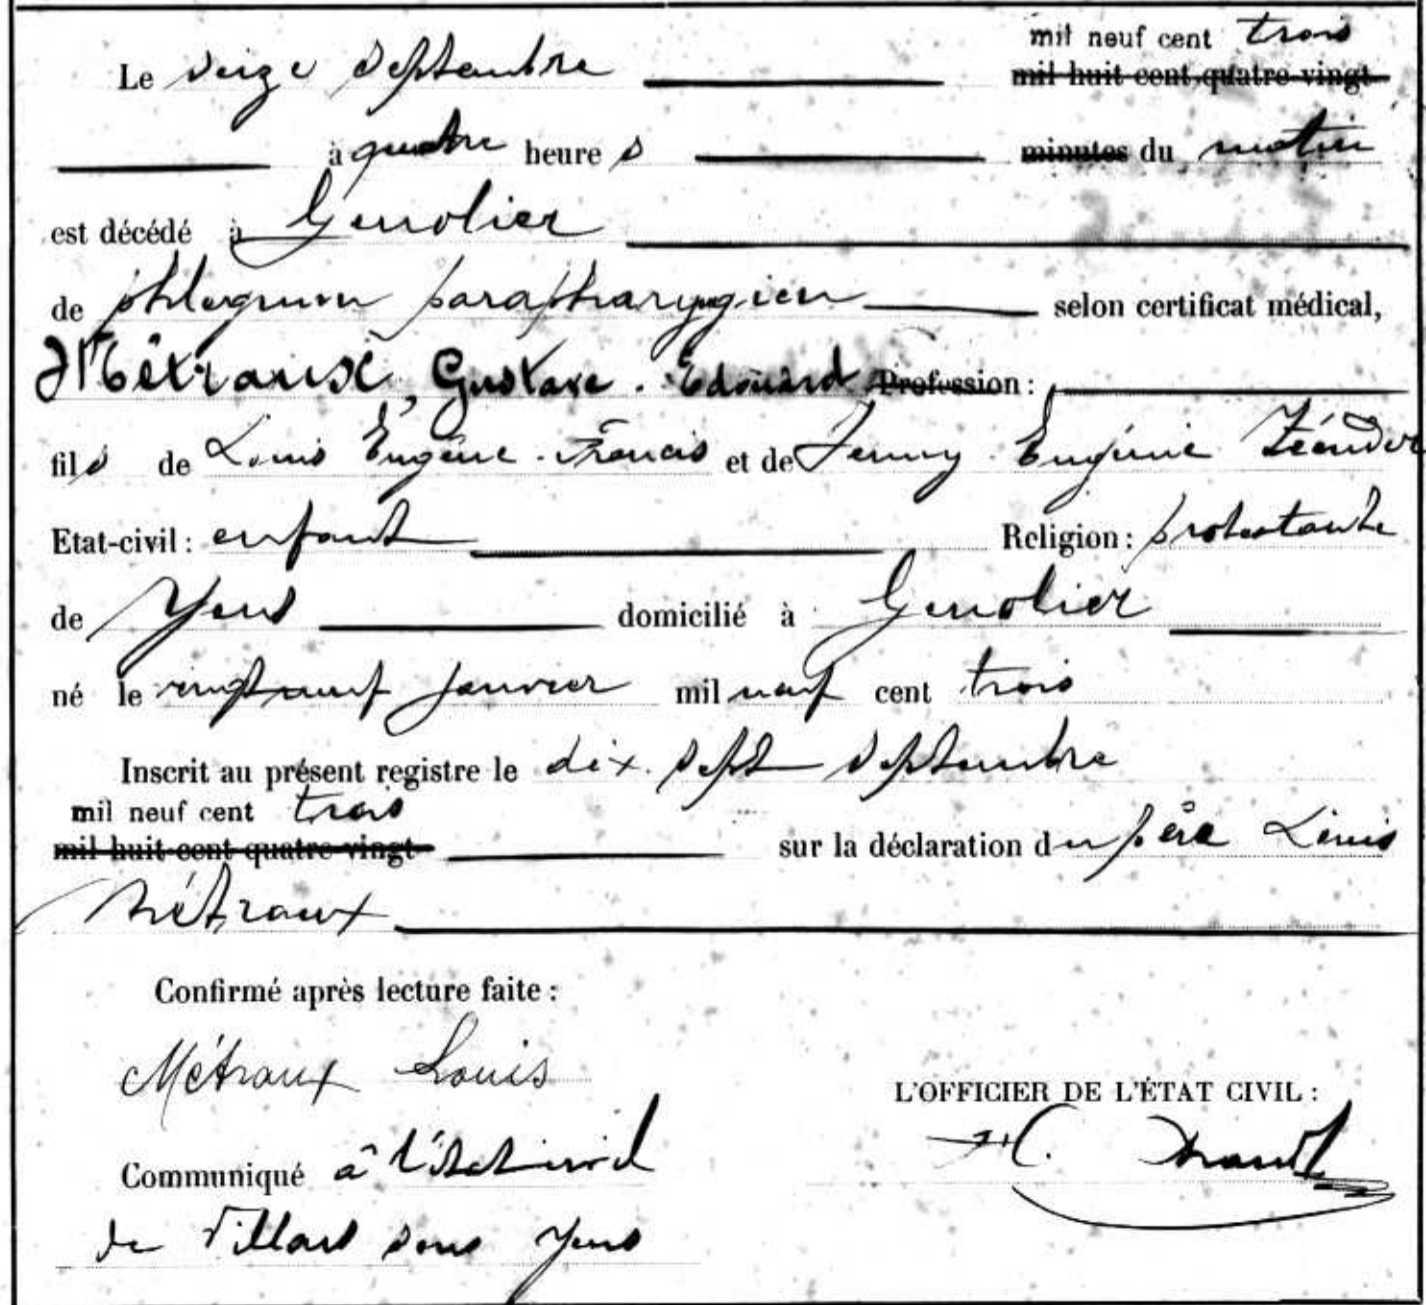 mil neuf cent trois
Le seize septembre mil huit cent quatre-vingt
à quatre heures minutes du matin
est décédé à Genolier
de phlegmon parapharyngien selon certificat médical,
Métraux, Gustave-Edouard Profession :
fils de Louis Eugène-Francis et de Jenny Eugénie
Etat-civil : enfant Religion : protestante
de Yens domicilié à Genolier
né le vingt neuf janvier mil neuf cent trois
Inscrit au présent registre le dix-sept septembre
mil neuf cent trois
mil huit cent quatre-vingt sur la déclaration du père Louis
Métraux
Confirmé après lecture faite :
Métraux Louis
L'OFFICIER DE L'ÉTAT CIVIL :
Communiqué à l'état civil
de Villars sous Yens